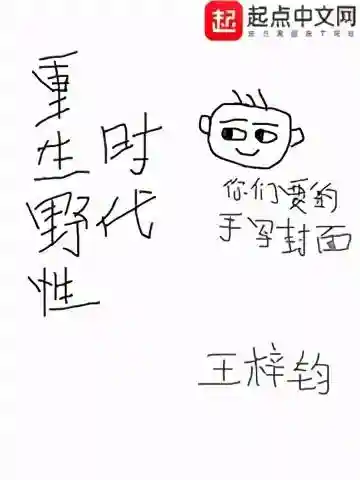 起
起点中文网
重生野性
时代
你们要的
手写封面
王梓钧